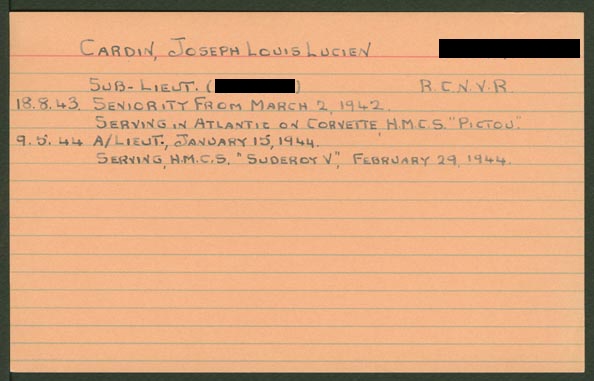 CARDIN, JOSEPH LOUIS LUCIEN
SUB-LIEUT. ( ) R.C.N.V.R.
18.8.43. SENIORITY FROM MARCH 2, 1942.
SERVING IN ATLANTIC ON CORVETTE, H.M.C.S. "PICTOU".
9.5.44 A/LIEUT., JANUARY 15, 1944.
SERVING, H.M.C.S. "SUDEROY V", FEBRUARY 29, 1944.